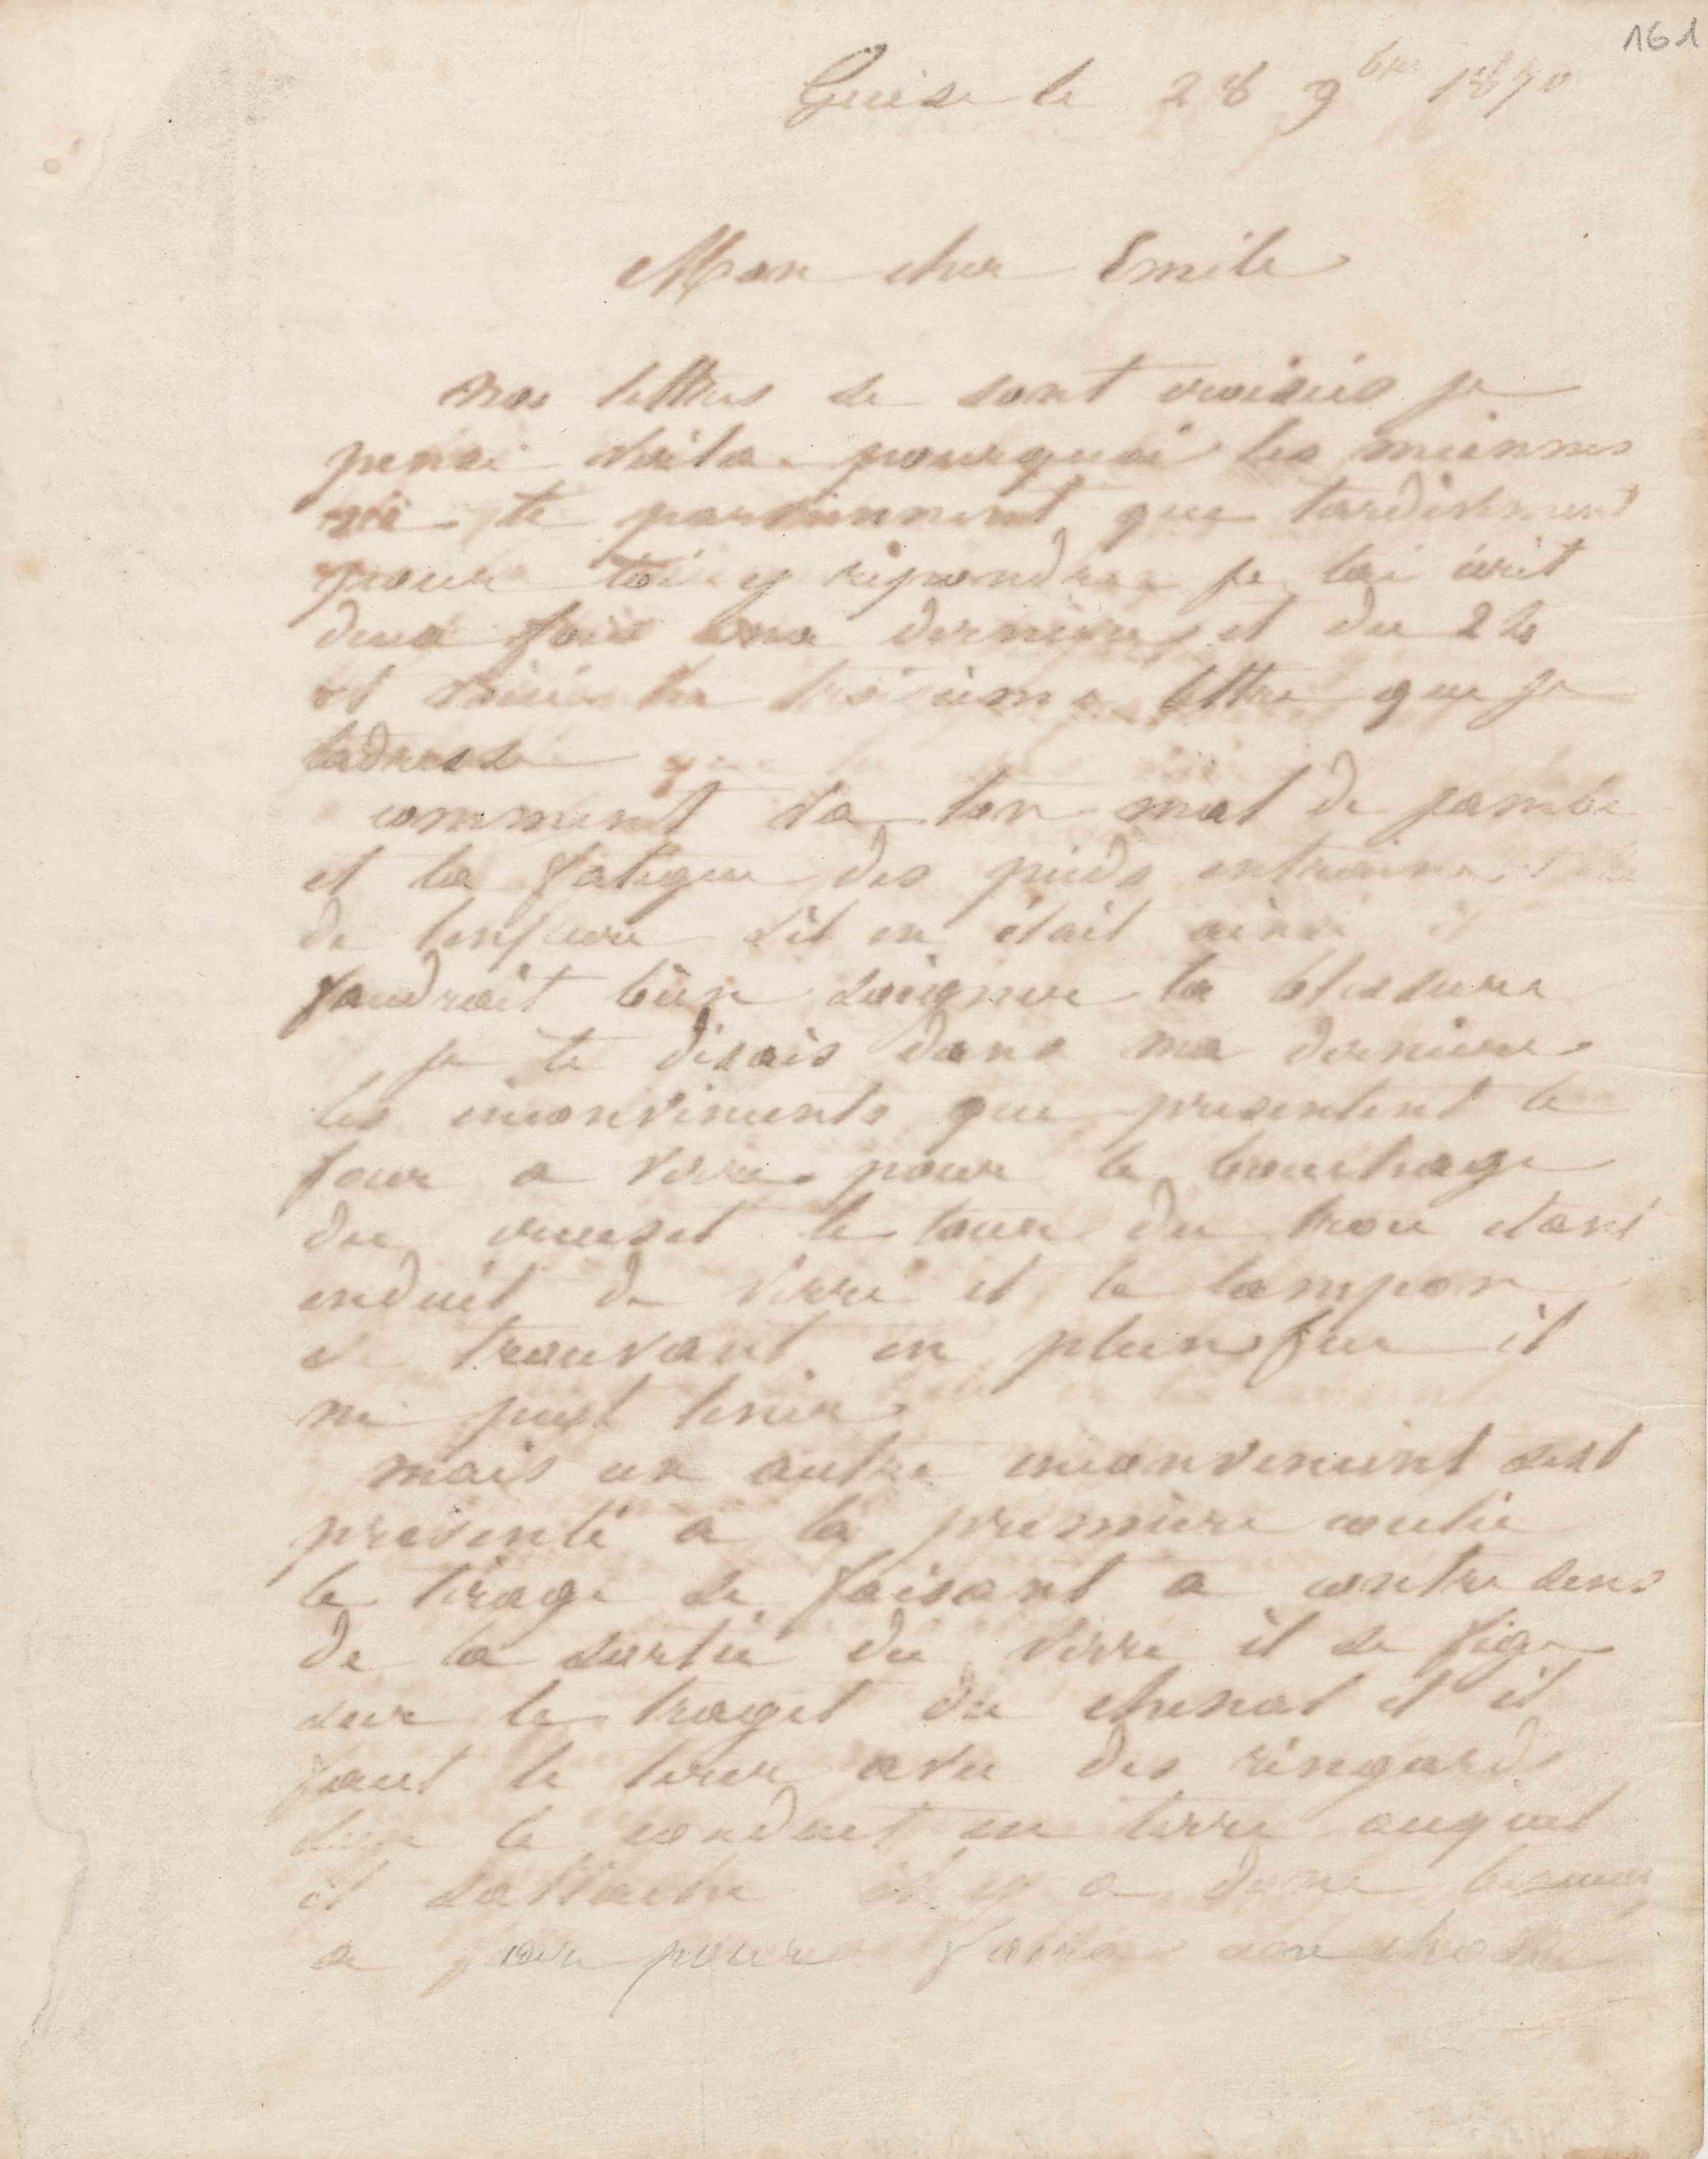 161
Guise le 28 9bre 1870
Mon cher Emile
nos lettres se sont croisées je
pense voila pourquoi les miennes
ne te parviennent que tardivement
pour toi y repondre je tai écrit
deux fois ma derniere et du 24
et voici la troisieme lettre que je
tadresse
comment va ton mal de jambe
et la fatigue des pieds entraine
de lenflure s'il en était ainsi il
faudrait bien soigner ta blessure
je te disais dans ma derniere
les inconvenients que presentent le
four a verre pour le bouchage
du creuset le tour du trou etant
enduit de verre et le tampon
se trouvant en plein feu il
ne peut tenir
mais un autre inconvenient sest
presenté a la premiere coulée
le tirage se faisant a contre sens
de la sortie du verre il se fige
sur le traget du chenal et il
faut le tirer avec des ringards
le conduit en terre auquel
il sattache il y a donc beaucoup
a pour faire une chose